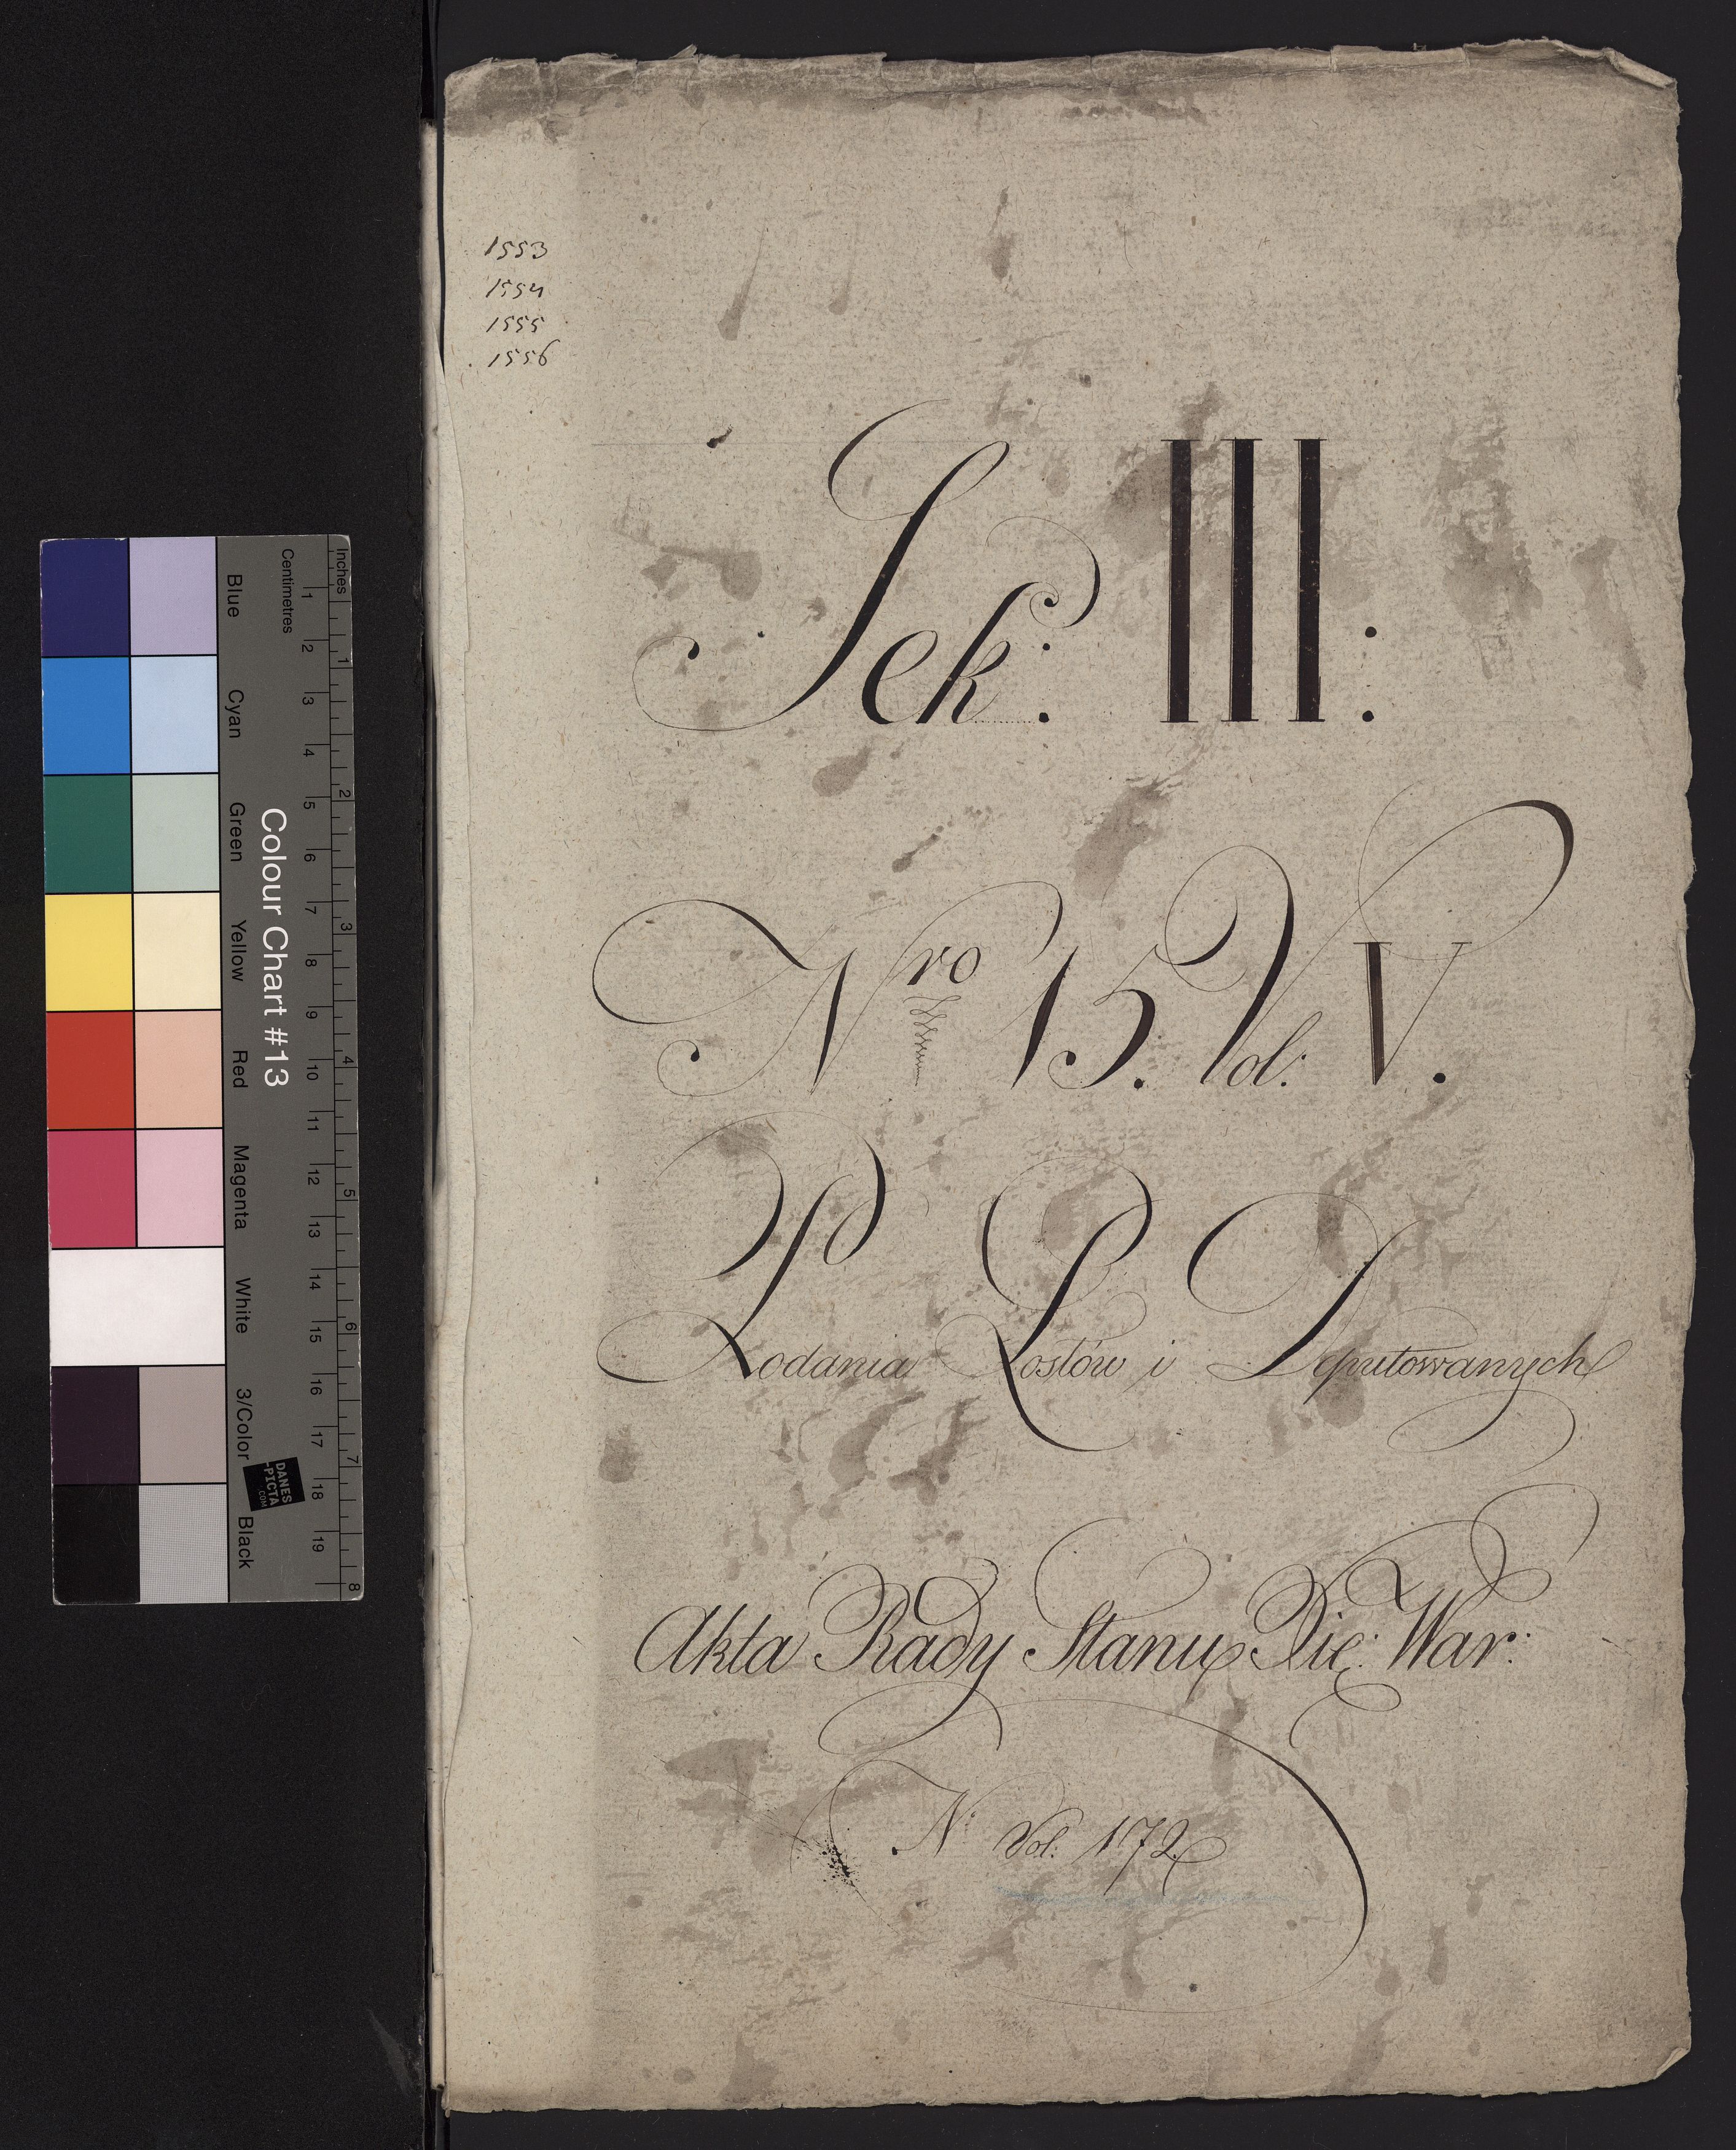 1553
1554
1555
1556
Sek: III:
Nro 15. Vol: V.
Podania Posłów i Deputowanych
Akta Rady Stanu Xię: War:
N: Vol: 172
Inches
Centimetres
1 2 3 4 5 6 7 8 9 10 11 12 13 14 15 16 17 18 19
1 2 3 4 5 6 7 8
Colour Chart #13
Blue Cyan Green Yellow Red Magenta White 3/Color Black
DANES
-PICTA
.COM